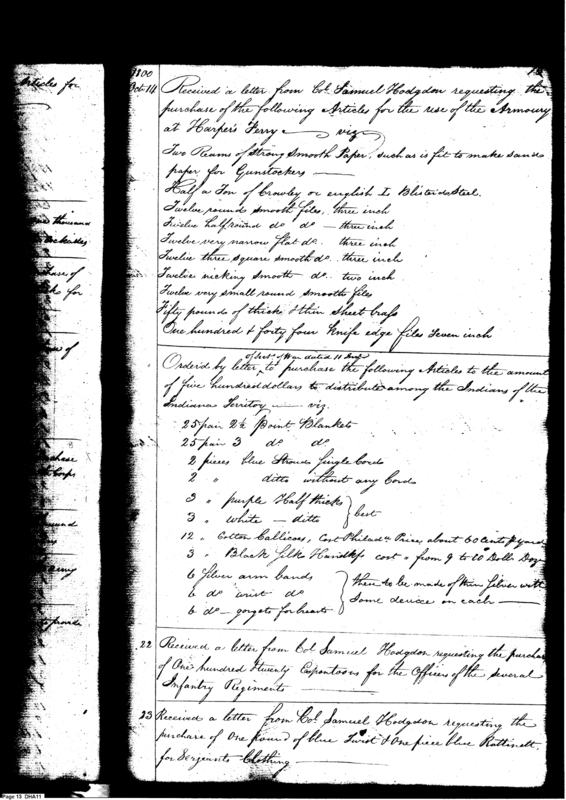 Articles for
1800
Octr. 14
Received a letter from Col. Samuel Hodgdon requesting the
purchase of the following Articles for the use of the Armoury
at Harper's Ferry viz
Two Reams of strong smooth Paper, such as is fit to make sand
paper for Gunstockers —
Half a Ton of Crowley or english Blister'd Steel.
Twelve round smooth files, three inch
Twelve half round do do — three inch
Twelve very narrow flat do. three inch
Twelve three square smooth do. three inch
Twelve nicking smooth do. two inch
Twelve very small round smooth files
Fifty pounds of thick & thin Sheet brass
One hundred & forty four Knife edge files seven inch
of Secy. of War dated 11 Inst
Orderid by letter to purchase the following Articles to the amount
of five hundred dollars to distribute among the Indians of the
Indiana Territoy — viz.
25 pair 2½ Point Blankets
25 pair 3 do do
2 pieces blue Strouds Single Cords
2 " ditto without any Cords
3 " purple Half thicks
3 " white — ditto } best
12 " Cotton Callicoes, Cost Philada. Price about 60 Cents p yard
3 " Black Silk Handkfs cost " from 9 to 10 Dolls Doz
6 Silver arm bands
6 do wrist do
6 do — gorgets for hearts
} then to be made of thin Silver with
some device on each —
22 Received a letter from Col Samuel Hodgdon requesting the purchase
of One hundred & twenty Espontoons for the Officers of the several
Infantry Regiments
23 Received a letter from Col. Samuel Hodgdon requesting the
purchase of One pound of blue Twist & One piece blue Rattinett
for Sergeants Clothing
one thousand
Cockades
chase of
for
of
purchase
Corps
army
provide
Page 13 DHA11